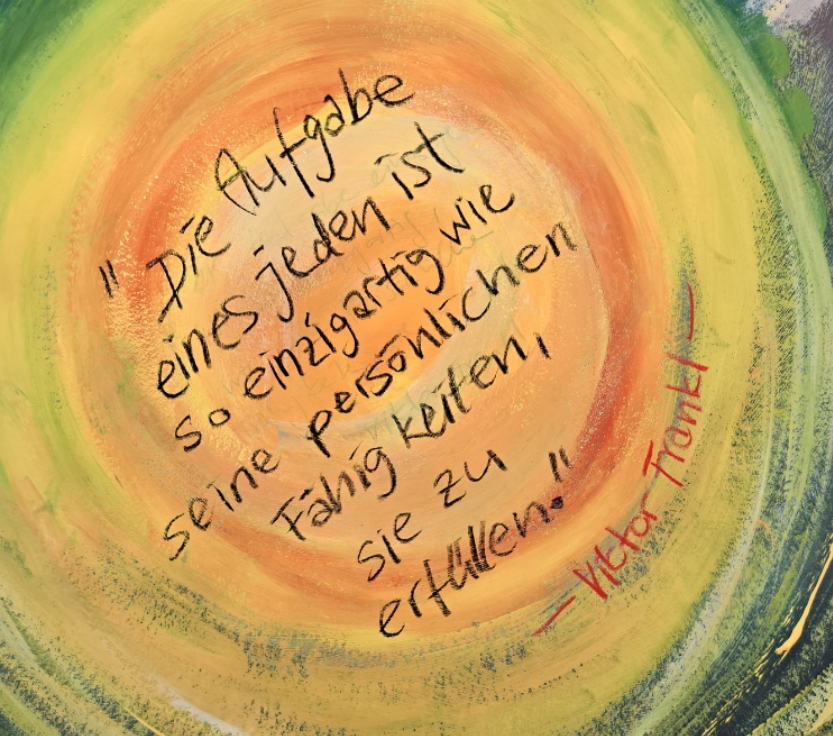 "Die Aufgabe
eines jeden ist
so einzigartig wie
seine persönlichen
Fähigkeiten,
sie zu
erfüllen."
— Viktor Frankl —